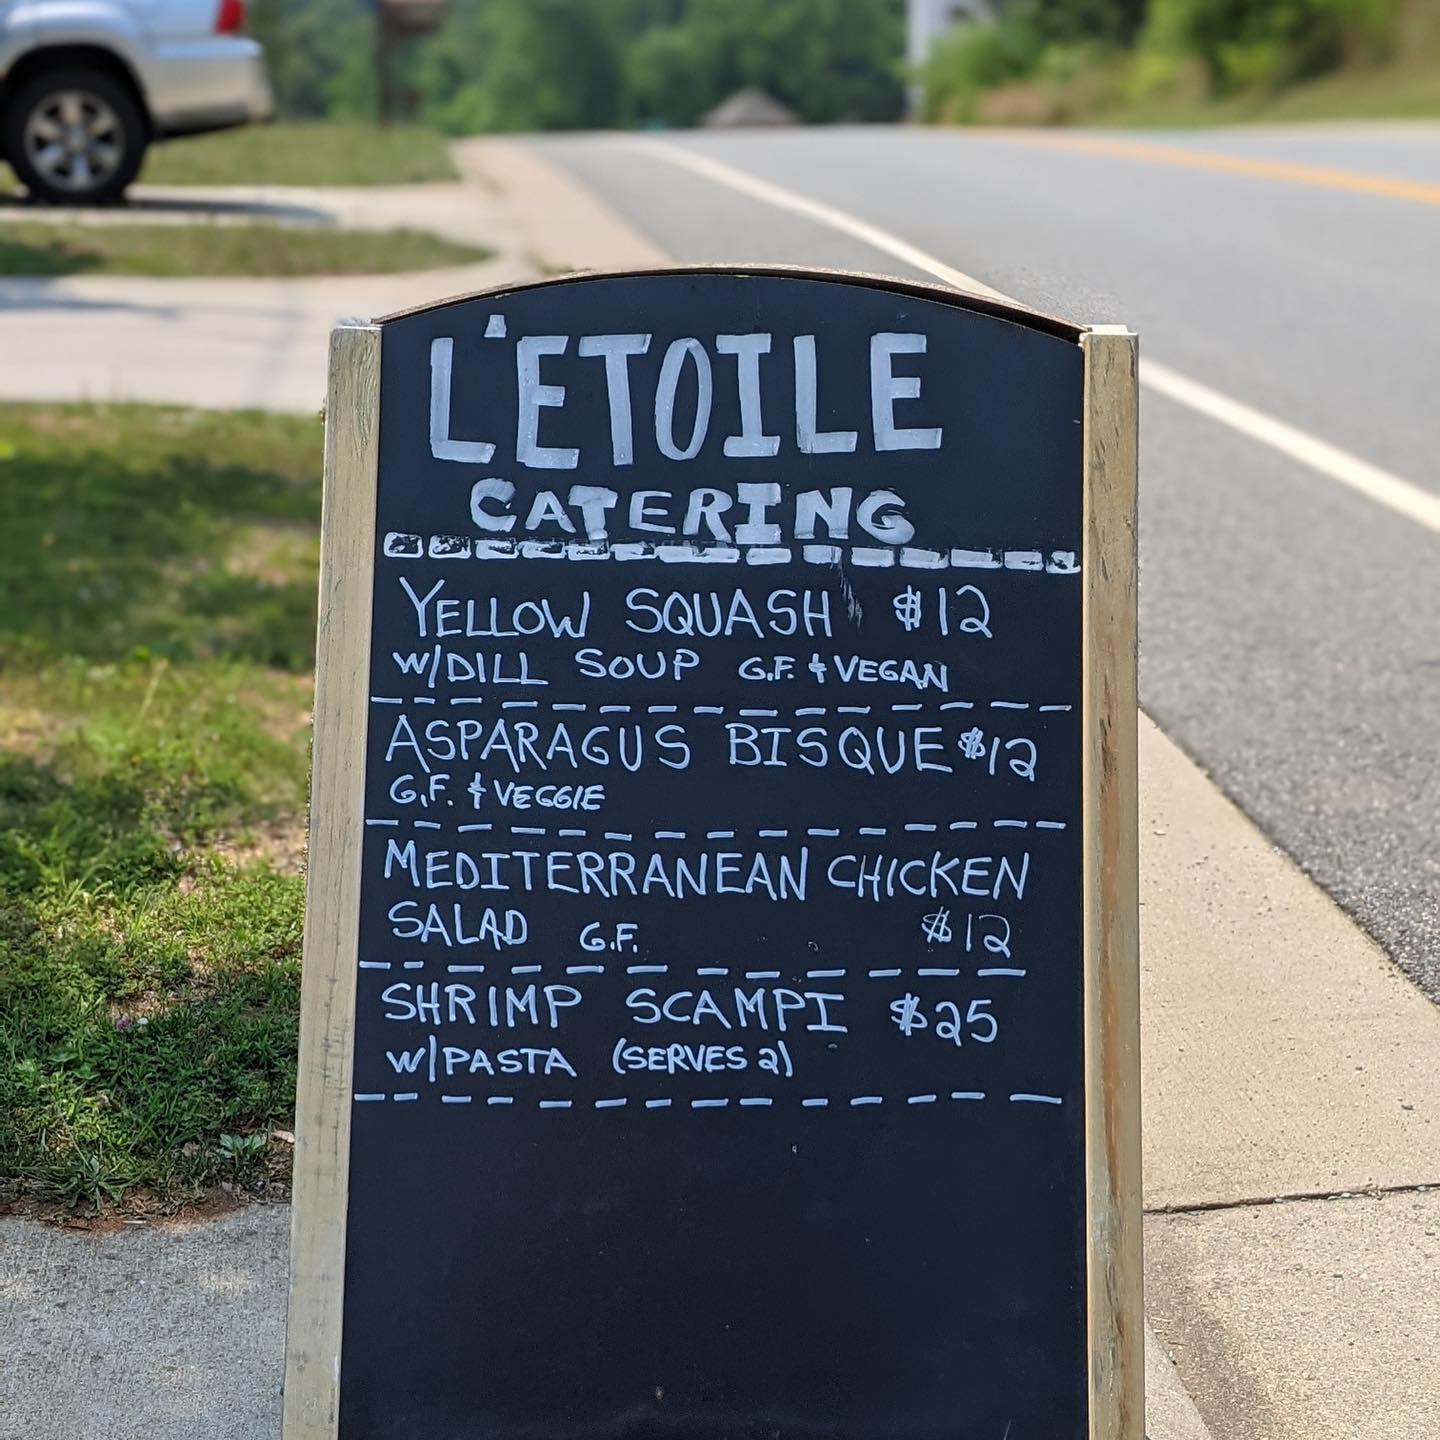 L'ETOILE
CATERING
YELLOW SQUASH $12
W/DILL SOUP G.F. & VEGAN
ASPARAGUS BISQUE $12
G.F. & VEGGIE
MEDITERRANEAN CHICKEN
SALAD G.F. $12
SHRIMP SCAMPI $25
W/PASTA (SERVES 2)